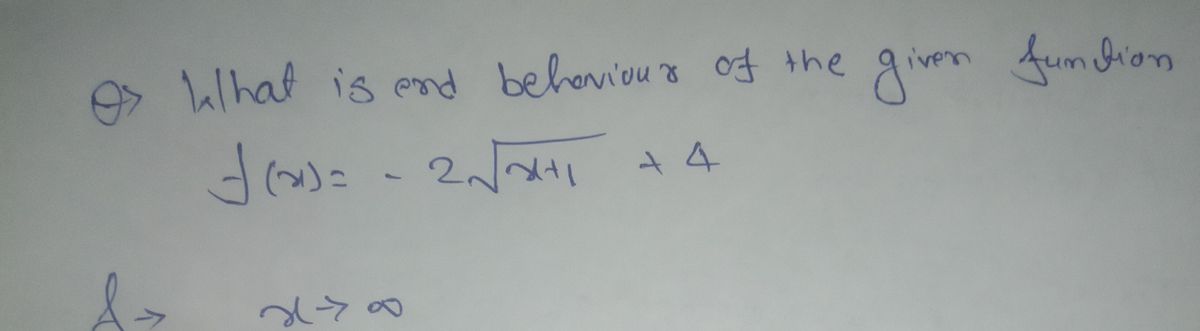 Q> What is end behaviour of the given function
f(x) = - 2√x+1 + 4
A→ x→ ∞